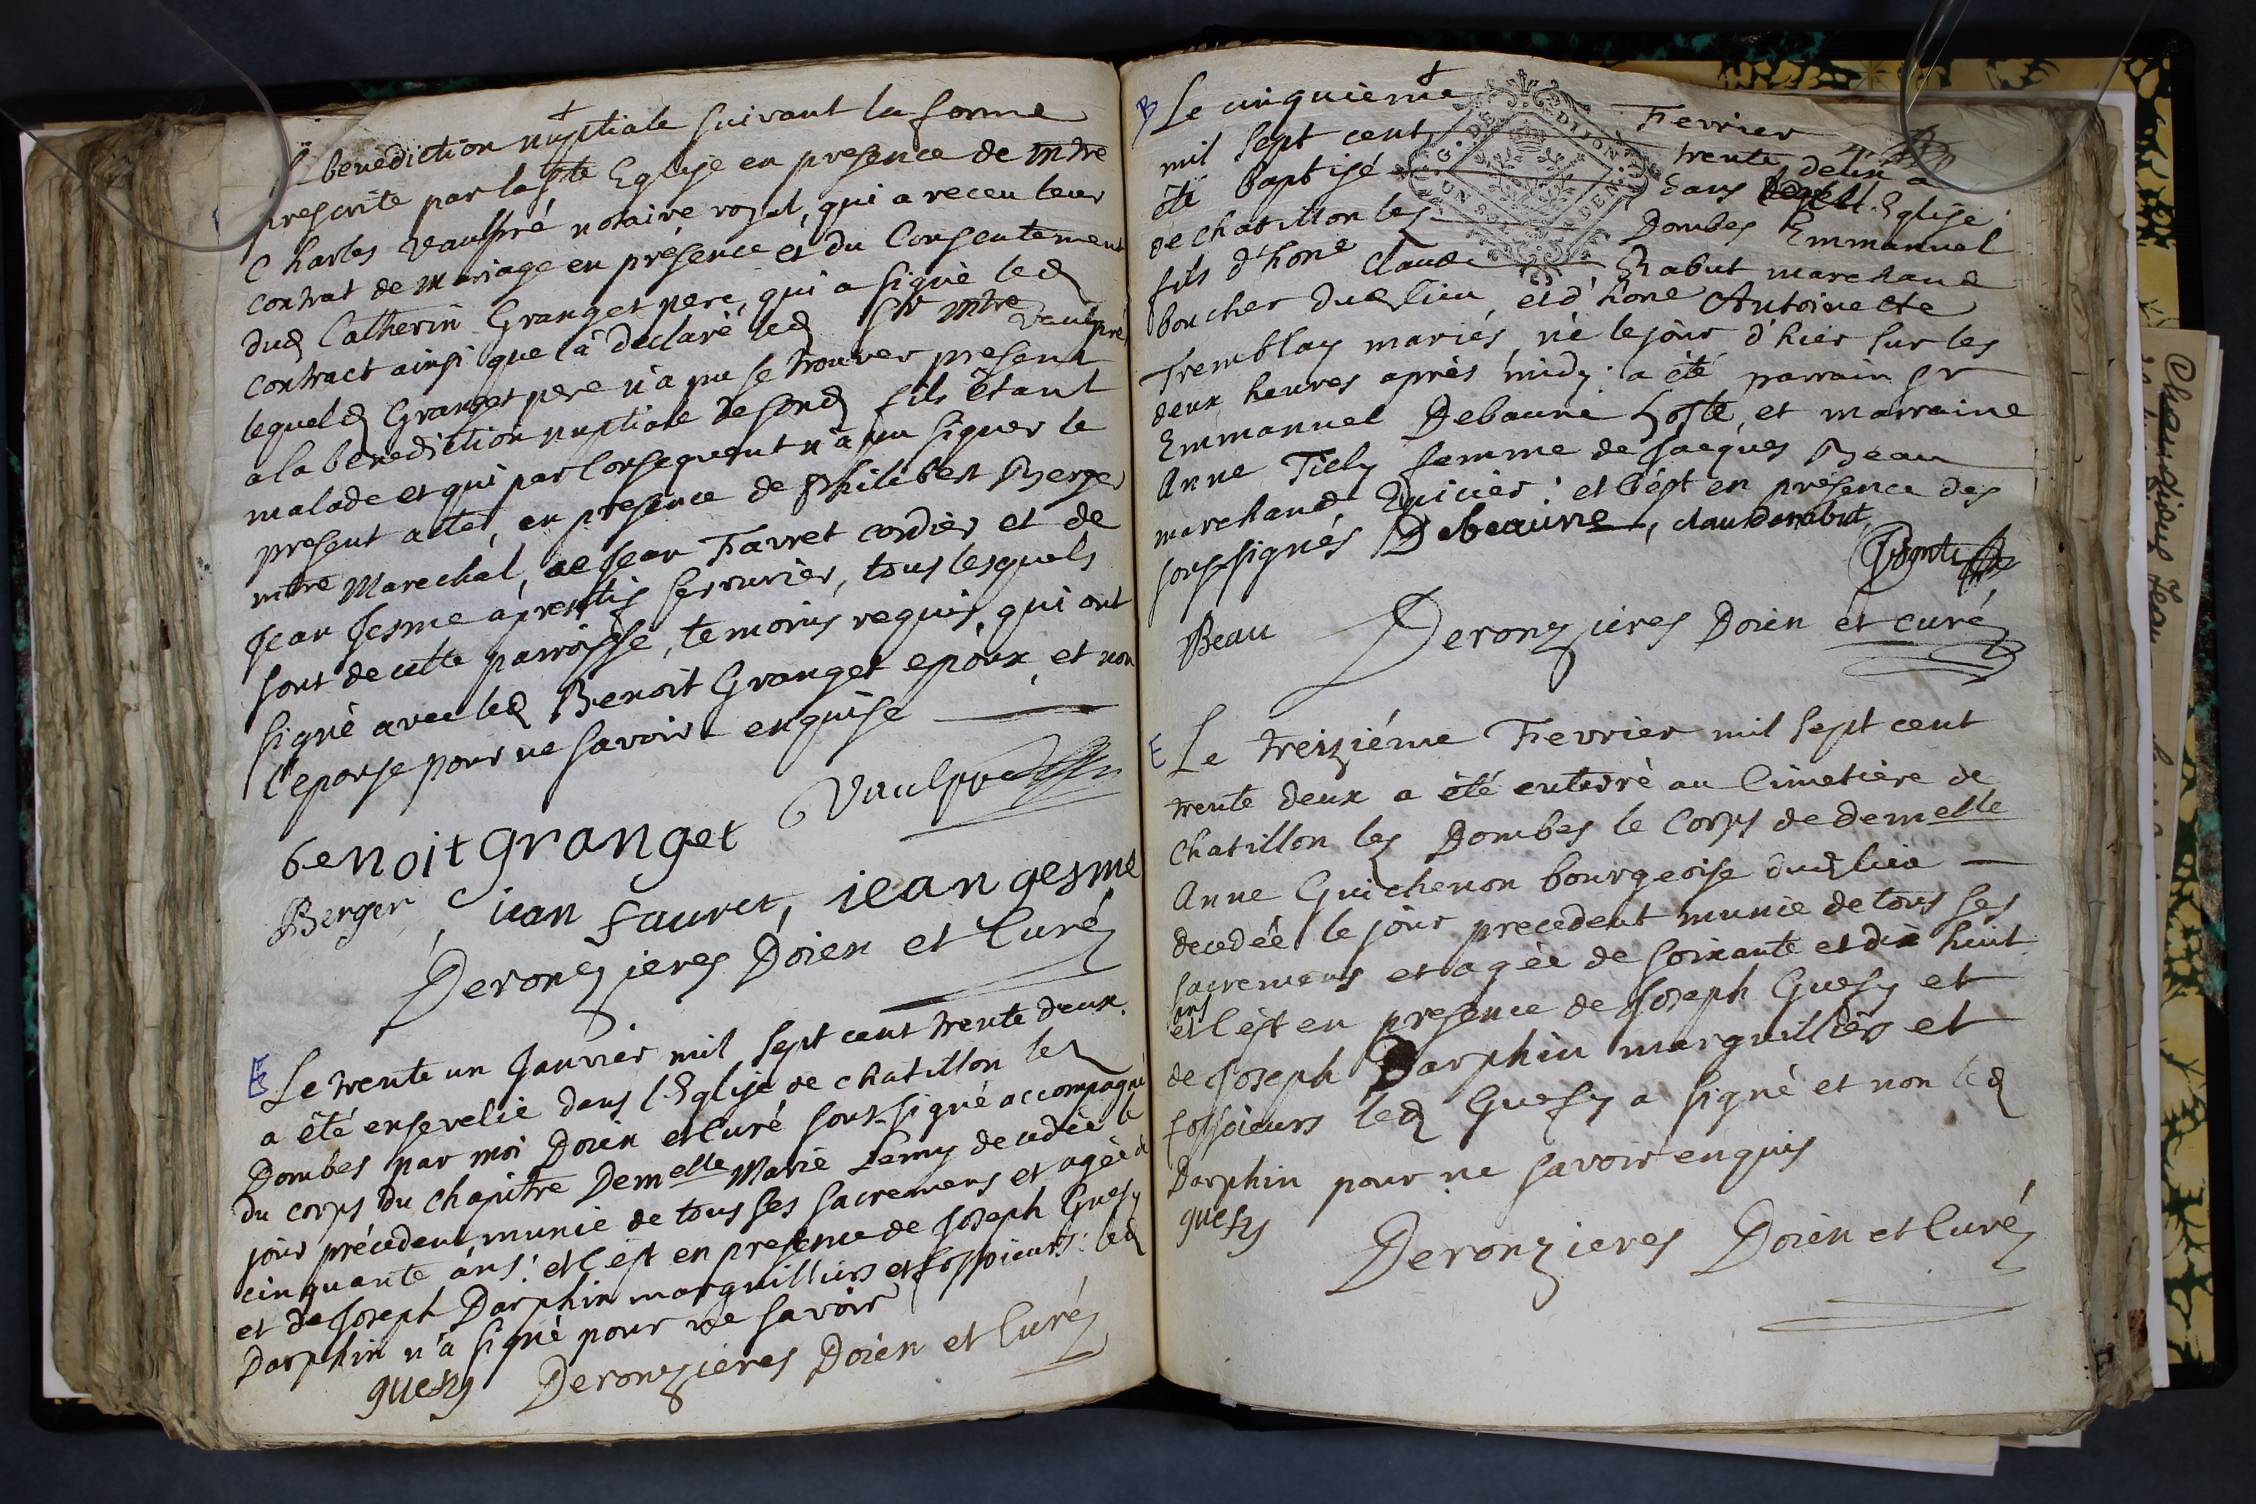 benediction nuptiale suivant la forme
prescrite par la ste Eglise en presence de mtre
Charles Vaulpré notaire royal, qui a receu leur
contrat de mariage en présence et du Consentement
dud Catherin Granget pere, qui a signé led
contract ainsi que l'a declaré led Sr mtre Vaulpré
lequel d Granget pere n'a pu se trouver present
a la benediction nuptiale de sond fils étant
malade et qui par Consequent n'a pu signer le
present acte, en presence de Philibert Berger
mtre Marechal, de Jean Favret cordier et de
Jean Jesme áprentis serrurier, tous lesquels
sont de cette parroisse, temoins requis, qui ont
signé avec led Benoit Granget epoux, et non
l'epouse pour ne savoir enquise
Vaulpré
benoit granget
Berger, jean fauret, iean gesme
Deronzieres Doien et Curé
E Le trente un Janvier mil sept cent trente deux
a été ensevelie dans l'Eglise de chatillon les
Dombes par moi Doien et Curé sous-signé accompagné
du corps du chapitre Demelle Marie Lemy decedée le
jour précedent munie de tous ses sacremens et agée de
cinquante áns: et c'est en presence de Joseph Guesy
et de Joseph Darphin marguilliers et fossoieurs: led
Darphin n'a signé pour ne savoir
guesy Deronzieres Doien et Curé
B Le cinquieme Fevrier
mil sept cent trente deux a
été baptisé dans l'Eglise
de chatillon les Dombes Emmanuel
fils d'hone Claude Rabut marchand
boucher dud lieu et d'hone Antoinette
Tremblay mariés, né le jour d'hier sur les
deux heures aprés midy: a été parrain sr
Emmanuel Debaune hoste, et marraine
Anne Tiely femme de Jacques Beau
marchand Epicier: et c'est en présence des
sous-signés Debeaune, claude rabut,
Beau Deronzieres Doien et curé
E Le treiziéme Fevrier mil sept cent
trente deux a été enterré au Cimetière de
Chatillon les Dombes le Corps de demelle
Anne Guichenon bourgeoise dud lieu
decedée le jour precedent munie de tous ses
sacremens et agée de soixante et dix huit
ans
et c'est en presence de Joseph Guesy et
de Joseph Darphin marguilliers et
fossoieurs led Guesy a signé et non led
Darphin pour ne savoir enquis
guesy
Deronzieres Doien et Curé
G. DE DIJON
UN SOL
DEN